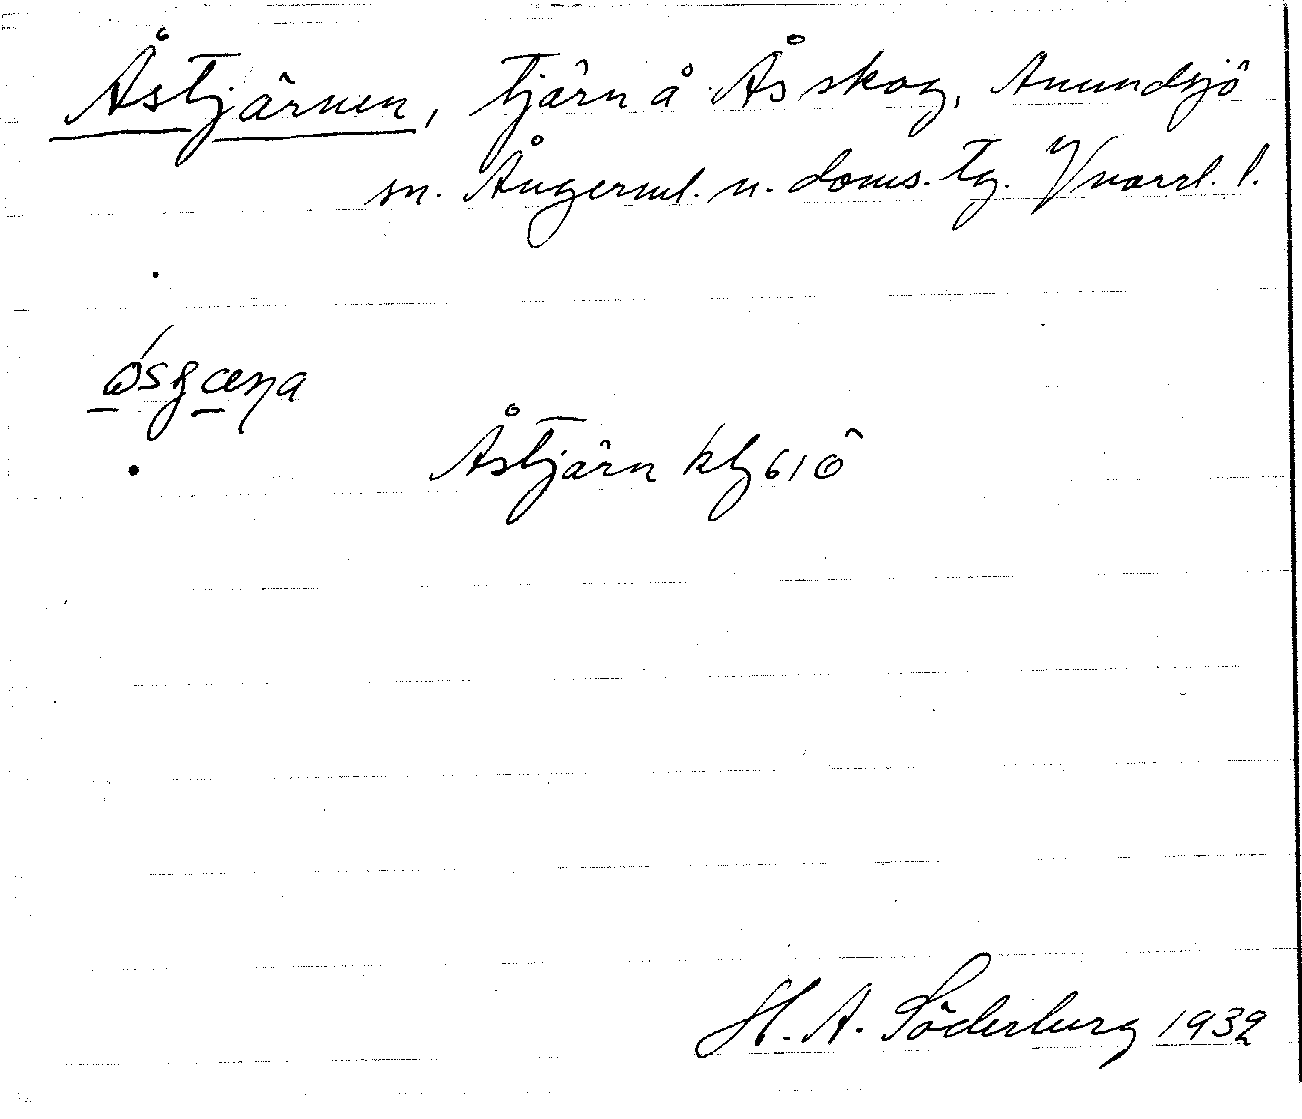 Åstjärnen, tjärn å Ås skog, Anundsjö
sn. Ångerml. n. doms. tg. Vnorrl. l.
Åstjärn kbl 61 Ö
H. A. Söderberg 1932